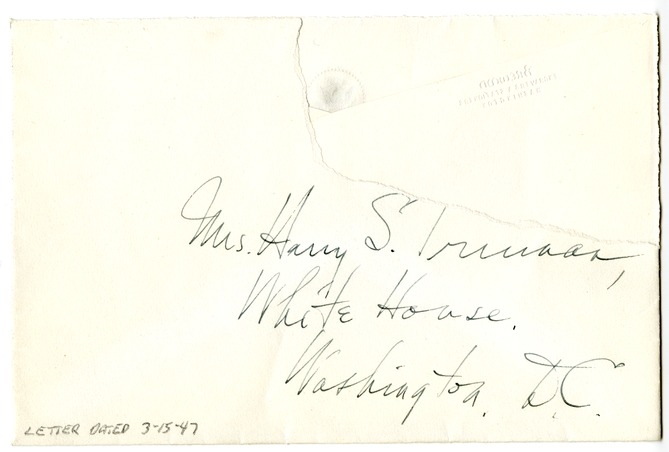 Mrs. Harry S. Truman,
White House,
Washington, D.C.
LETTER DATED 3-15-47